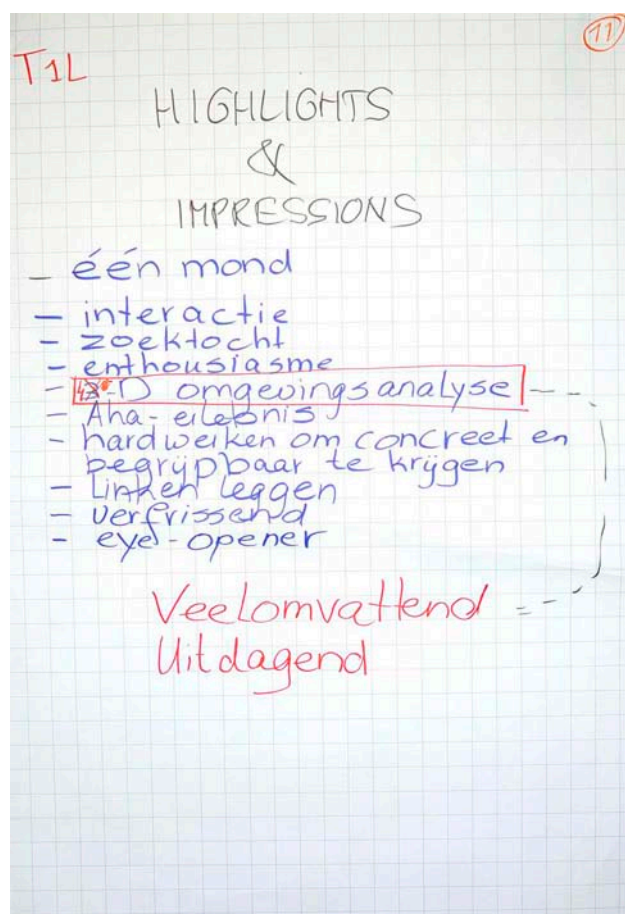 11
T1L
HIGHLIGHTS
&
IMPRESSIONS
- één mond
- interactie
- zoektocht
- enthousiasme
- 4-D omgevingsanalyse
- Aha-erlebnis
- hard werken om concreet en
begrijpbaar te krijgen
- Linken leggen
- verfrissend
- eye-opener
Veelomvattend
Uitdagend